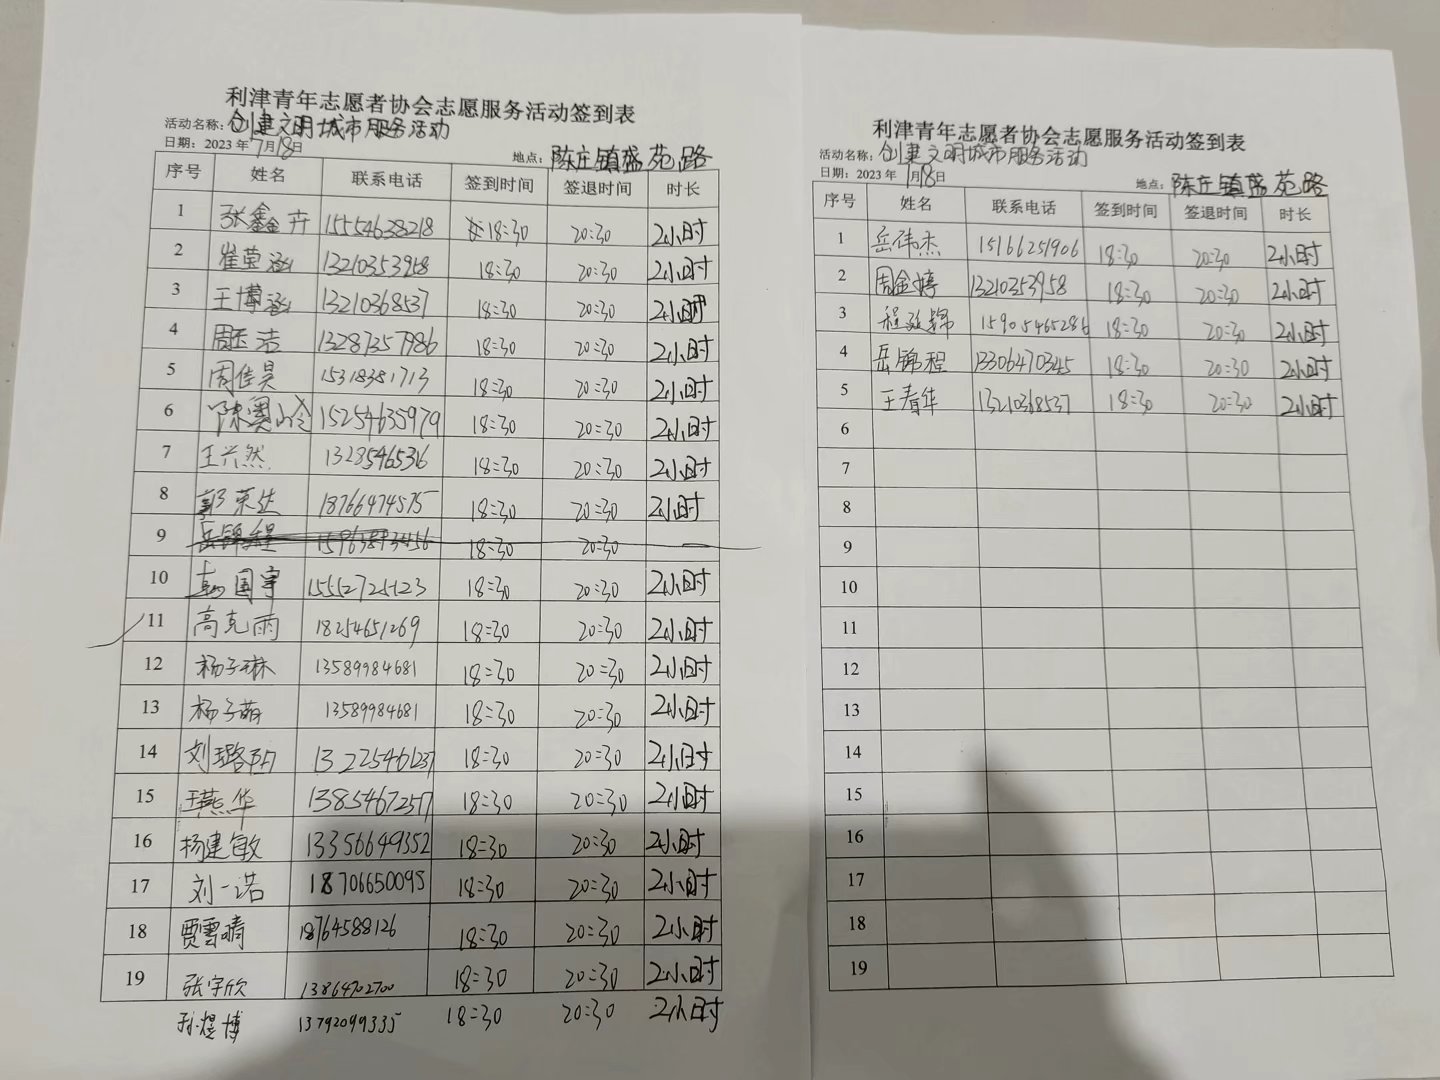 利津青年志愿者协会志愿服务活动签到表
活动名称：创建文明城市服务活动
日期：2023年7月18日 地点：陈庄镇盛苑路
序号 姓名 联系电话 签到时间 签退时间 时长
1 张鑫卉 15554638218 18:30 20:30 2小时
2 崔莹涵 13210353958 18:30 20:30 2小时
3 王博涵 13210368537 18:30 20:30 2小时
4 周玉洁 13287357986 18:30 20:30 2小时
5 周佳昊 15318381713 18:30 20:30 2小时
6 陈奥冷 15254635979 18:30 20:30 2小时
7 王兴然 1328546536 18:30 20:30 2小时
8 郭荣达 18766474575 18:30 20:30 2小时
9 岳锦程 18:30 20:30
10 韩国宇 15552725123 18:30 20:30 2小时
11 高克雨 18254651269 18:30 20:30 2小时
12 杨子琳 13589984681 18:30 20:30 2小时
13 杨子萌 13589984681 18:30 20:30 2小时
14 刘璐阳 13225461237 18:30 20:30 2小时
15 王燕华 13854672517 18:30 20:30 2小时
16 杨建敏 13356649352 18:30 20:30 2小时
17 刘一诺 18706650095 18:30 20:30 2小时
18 贾雪晴 18764588126 18:30 20:30 2小时
19 张宇欣 13864702700 18:30 20:30 2小时
孙煜博 13792099335 18:30 20:30 2小时
利津青年志愿者协会志愿服务活动签到表
活动名称：创建文明城市服务活动
日期：2023年7月18日 地点：陈庄镇盛苑路
序号 姓名 联系电话 签到时间 签退时间 时长
1 岳伟杰 15166251906 18:30 20:30 2小时
2 周金婷 13210353958 18:30 20:30 2小时
3 程 锦 15905465286 18:30 20:30 2小时
4 岳锦程 13306470345 18:30 20:30 2小时
5 王春华 13210368537 18:30 20:30 2小时
6
7
8
9
10
11
12
13
14
15
16
17
18
19